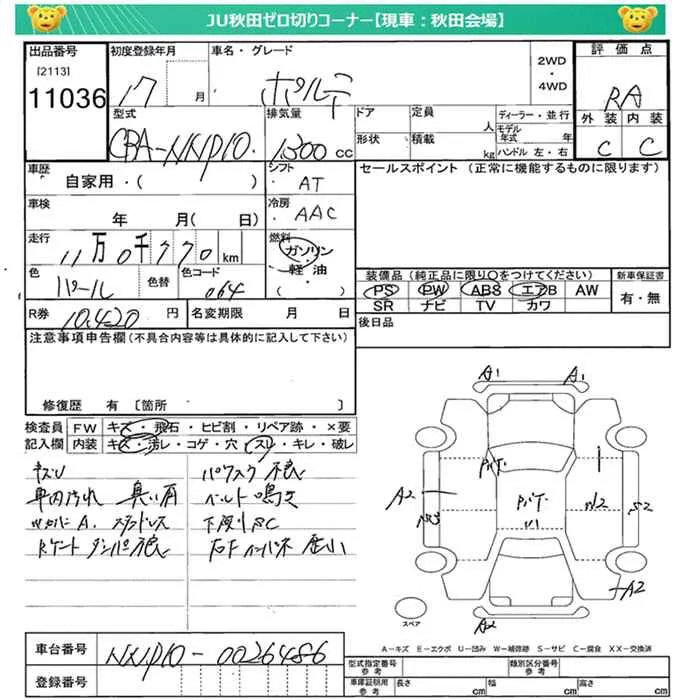 JU秋田ゼロ切りコーナー【現車：秋田会場】
出品番号
[2113]
11036
初度登録年月
17 月
車名・グレード
ポルテ
2WD
・
4WD
評価点
RA
外装 内装
C C
型式
CBA-NNP10
排気量
1300 cc
ドア
形状
定員 人
積載 kg
ディーラー・並行
モデル年式 年
ハンドル 左・右
車歴
自家用・( )
シフト
AT
セールスポイント (正常に機能するものに限ります)
車検
年 月( 日)
冷房
AAC
走行
11万0千770km
燃料
ガソリン
・
軽油
( )
色
パール
色替
色コード
064
装備品(純正品に限り○をつけてください)
PS PW ABS エアB AW
SR ナビ TV カワ
新車保証書
有・無
R券 10,420 円
名変期限 月 日
後日品
注意事項申告欄(不具合内容等は具体的に記入して下さい)
修復歴 有 〔箇所 〕
検査員
記入欄
FW キズ・飛石・ヒビ割・リペア跡・×要
内装 キズ・汚レ・コゲ・穴・スレ・キレ・破レ
キズU
車内汚れ 臭い有
A. スタッドレス
Rゲートダンパ不良
パワスラ不良
ベルト鳴き
下廻りSC
A1 A1
A2
A2
S2
W2
A2
スペア
A-キズ E-エクボ U-凹み W-補修跡 S-サビ C-腐食 XX-交換済
車台番号
NNP10-0026486
登録番号
型式指定番号
参考
類別区分番号
参考
車庫証明用
参考
長さ cm
幅 cm
高さ cm